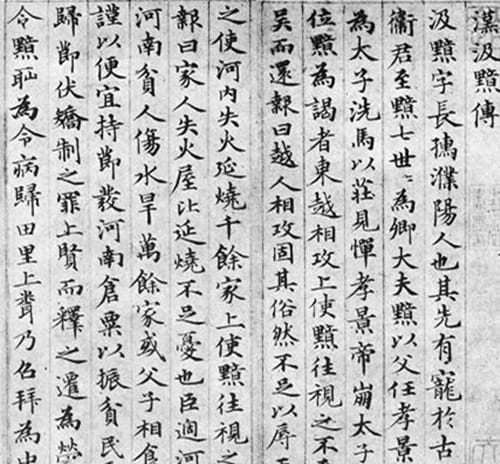 漢汲黯傳
汲黯字長孺濮陽人也其先有寵於古
衛君至黯七世〻為卿大夫黯以父任孝景
為太子洗馬以莊見憚孝景帝崩太子
位黯為謁者東越相攻上使黯往視之不
吳而還報曰越人相攻固其俗然不足以辱
之使河内失火延燒千餘家上使黯往視之
報曰家人失火屋比延燒不足憂也臣過河
河南貧人傷水旱萬餘家或父子相食
謹以便宜持節發河南倉粟以振貧民
歸節伏矯制之罪上賢而釋之遷為滎
令黯恥為令病歸田里上聞乃召拜為中